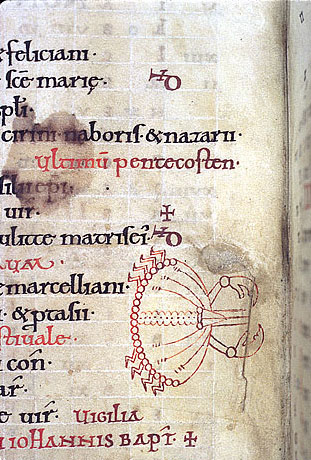 & feliciani·
sc̄e marię· HO
pl̄i·
cirini naboris·&nazarii·
Ultimū pentecosten·
epi·
uir̄· ✠
ulitte matris ei᷒ HO
marcelliani·
·&ptasii·
stiuale·
con̄·
ar̄·
uir̄· VIGILIA
IOHANNIS BAPT̄· ✠